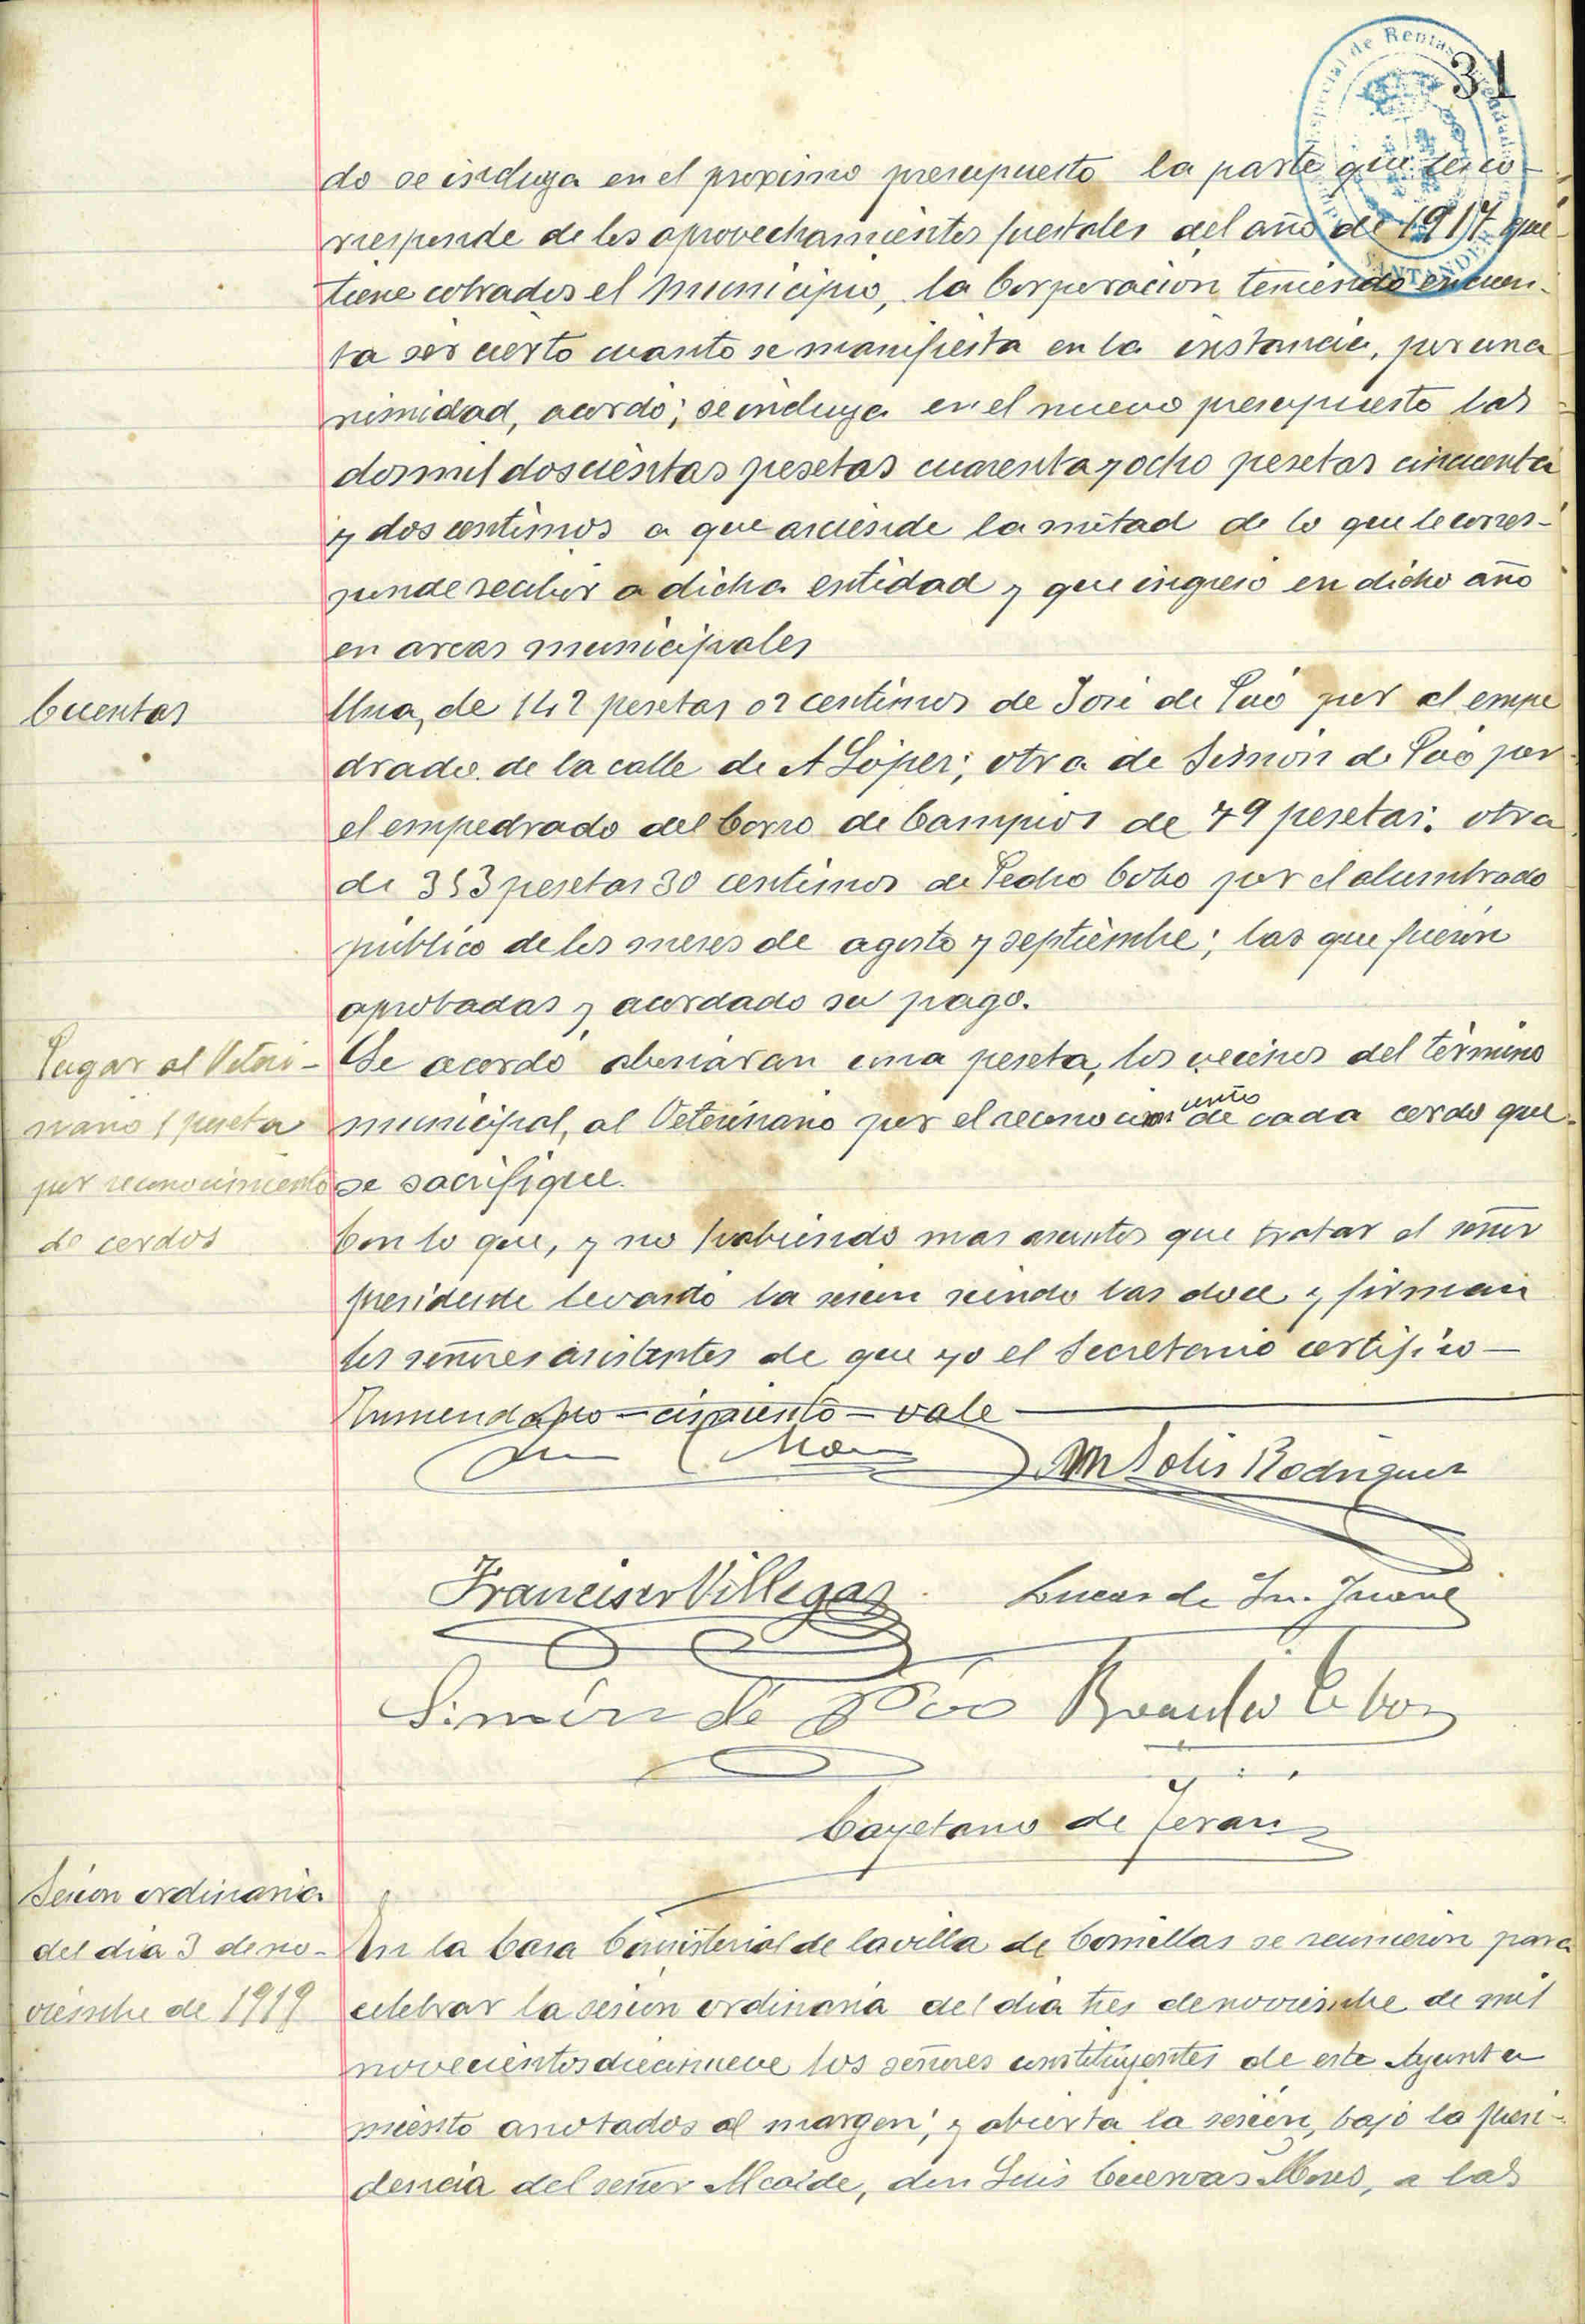 31
do se incluya en el proximo presupuesto la parte que le co-
rresponde de los aprovechamientos forestales del año de 1917 que
tiene cobrados el Municipio, la Corporacion teniendo en cuen-
ta ser cierto cuanto se manifiesta en la instancia, por una
nimidad, acordó; se incluya en el nuevo presupuesto las
dos mil doscientas pesetas cuarenta y ocho pesetas cincuenta
y dos centimos a que asciende la mitad de lo que le corres-
ponde recibir a dicha entidad y que ingresó en dicho año
en arcas municipales
Cuentas
Una, de 142 pesetas 02 centimos de José de Pió por el empe
drado de la calle de A López; otra de Simón de Pió por
el empedrado del Corro de Campios de 79 pesetas; otra
de 353 pesetas 30 centimos de Pedro Cobo por el alumbrado
público de los meses de agosto y septiembre; las que fueron
aprobadas y acordado su pago.
Pagar al Veteri-
nario 1 peseta
por reconocimiento
de cerdos
Se acordó abonaran una peseta, los vecinos del término
municipal, al Veterinario por el reconocimiento de cada cerdo que
se sacrifique.
Con lo que, y no habiendo mas asuntos que tratar el señor
presidente levantó la sesion siendo las doce y firman
los señores asistentes de que yo el Secretario certifico—
Enmendado—cimiento—vale
M Solis Rodriguez
Francisco Villegas
Lucas de Sn. Juan
Simón de Pió
Braulio Cobo
Cayetano de Terán
Sesion ordinaria
del dia 3 de no-
viembre de 1919
En la Casa Consistorial de la villa de Comillas se reunieron para
celebrar la sesion ordinaria del dia tres de noviembre de mil
novecientos diecinueve los señores constituyentes de este Ayunta
miento anotados al margen; y abierta la sesion, bajo la presi-
dencia del señor Alcalde, don Luis Cuervas Mons, a las